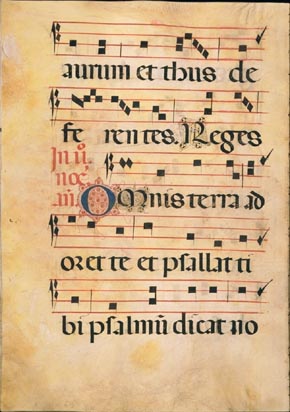 aurum et thus de
fe rentes. Reges
In ii.
noc̃.
añ. Omnis terra ad
oret te et psallat ti
bi psalmū dicat no